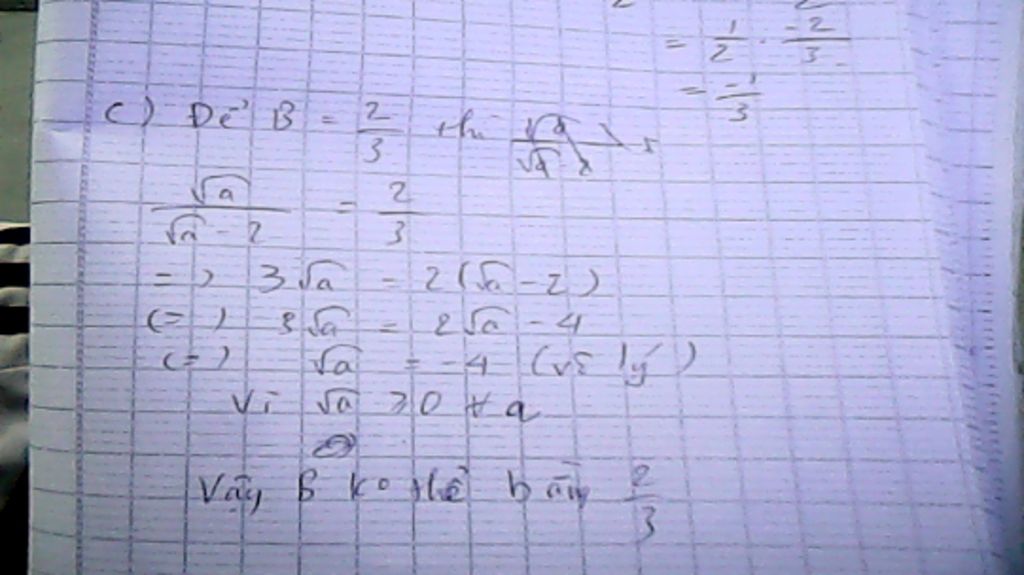 = 1/2 . -2/3
= -1/3
c) Để B = 2/3 thì
√a/(√a - 2) = 2/3
=> 3√a = 2(√a - 2)
<=> 3√a = 2√a - 4
<=> √a = -4 (vô lý)
Vì √a ≥ 0 ∀ a
Vậy B ko thể bằng 2/3